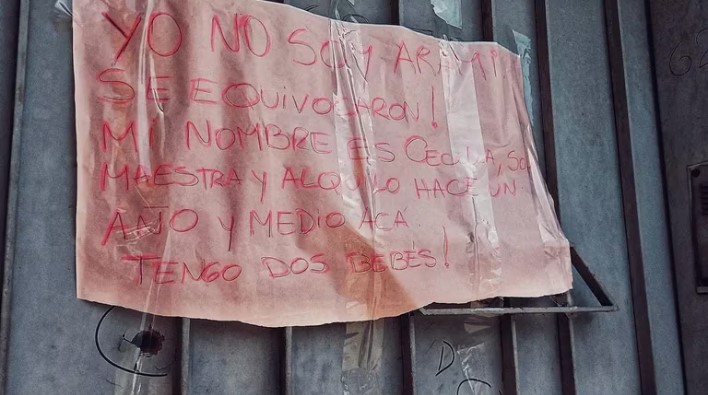 YO NO SOY ARAMI
SE EQUIVOCARON!
MI NOMBRE ES CECILIA, SOY
MAESTRA Y ALQUILO HACE UN
AÑO Y MEDIO ACA.
TENGO DOS BEBÉS!